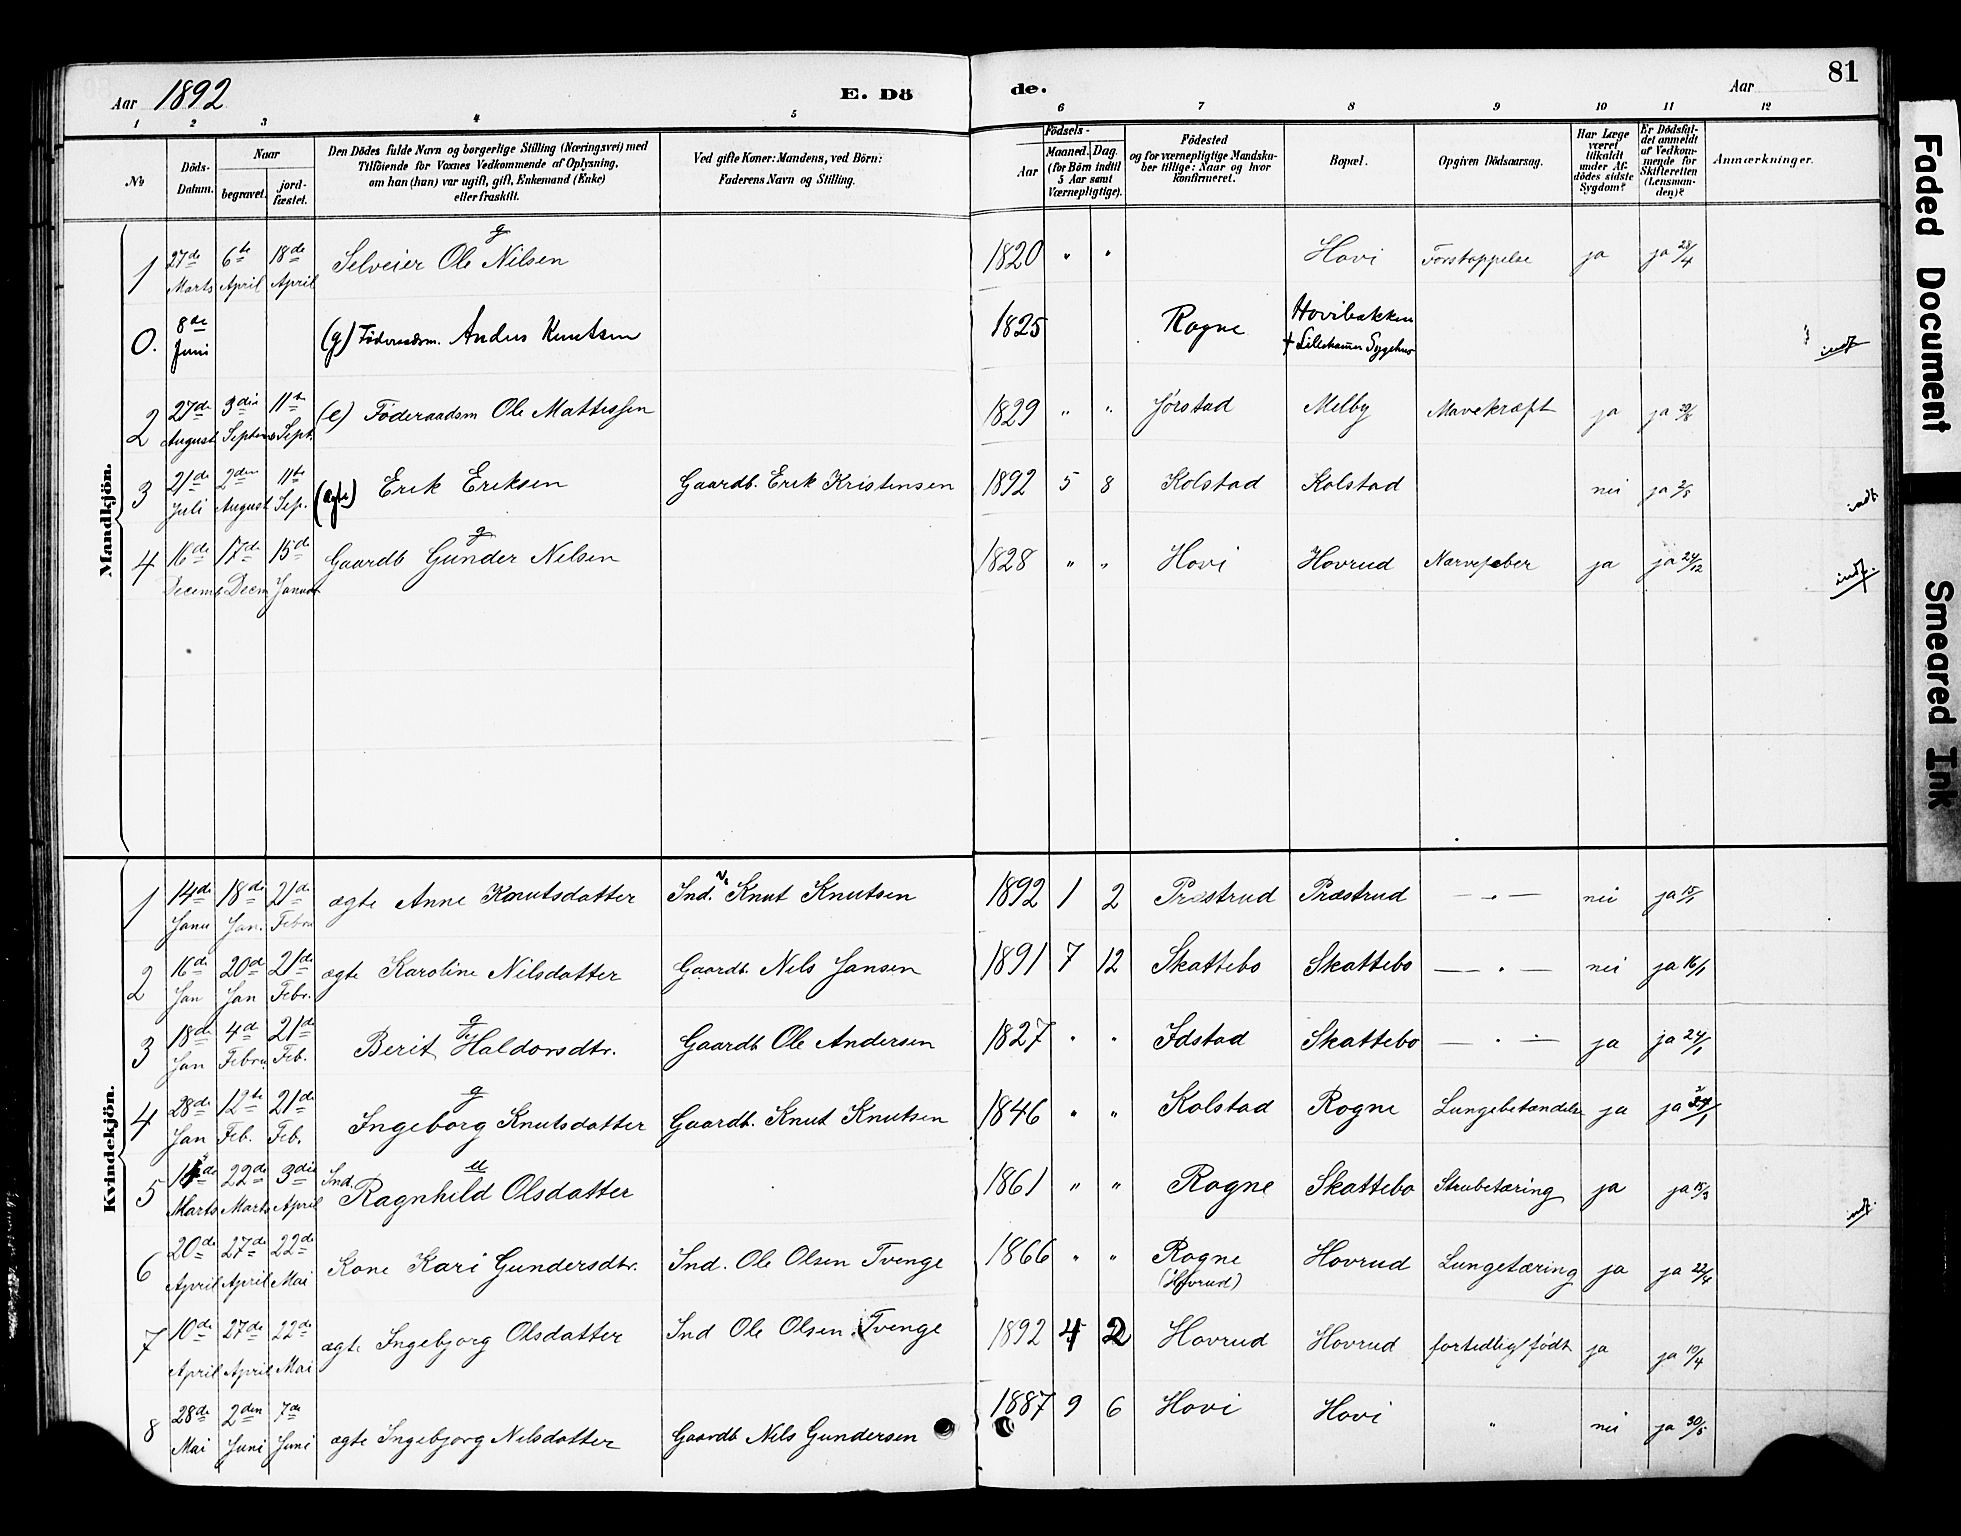 Aar 1892 E. Dö de. Aar 81
1 2 3 4 5 6 7 8 9 10 11 12
No
Döds-Datum.
Naar
begravet.
jord-fæstet.
Den Dödes fulde Navn og borgerlige Stilling (Næringsvei) med
Tilföiende for Voxnes Vedkommende af Oplysning,
om han (hun) var ugift, gift, Enkemand (Enke)
eller fraskilt.
Ved gifte Koner: Mandens, ved Börn:
Faderens Navn og Stilling.
Födsels-
Aar
Maaned. Dag.
(for Börn indtil
5 Aar samt
Værnepligtige).
Födested
og for værnepligtige Mandska-
ber tillige: Naar og hvor
konfirmeret.
Bopæl.
Opgiven Dödsaarsag.
Har Læge
været
tilkaldt
under Af-
dödes sidste
Sygdom?
Er Dödsfal-
det anmeldt
af Vedkom-
mende for
Skifteretten
(Lensman-
den)?
Anmærkninger.
Mandkjön.
1 27de Marts 6te April 18de April Selveier Ole Nilsen g 1820 " " Hovi Forstoppelse ja ja 28/4
0. 8de Juni (g) Föderaadsm. Anders Knutsen 1825 Rogne Hovibakken + Lillehamer Sygehus indf
2 27de August 3die Septem 11te Sept. (e) Föderaadsm Ole Mattissen 1829 " " Jörstad Melby Mavekræft ja ja
3 21de Juli 2den August 11te Sep. (ægte) Erik Eriksen Gaardb. Erik Kristensen 1892 5 8 Kolstad Kolstad nei ja 2/8 indf
4 16de Decemb 17de Decm 15de Januar Gaardb Gunder Nilsen g 1828 " " Hovi Hovrud Nærvefeber ja ja 24/12 indf.
Kvindekjön.
1 14de Janu 18de Jan. 21de Febru ægte Anne Knutsdatter Ind. Knut Knutsen 1892 1 2 Præstrud Præstrud — " — nei ja 15/1
2 16de Jan 20de Jan 21de Febr. ægte Karoline Nilsdatter Gaardb. Nels Jansen 1891 7 12 Skattebo Skattebo — " — nei ja 16/1
3 18de Jan 4de Febru. 21de Feb. Berit Haldorsdtr. g Gaardb Ole Andersen 1827 " " Idstad Skattebo — " — ja ja 24/1
4 28de Jan 12te Feb. 21de Feb. Ingeborg Knutsdatter g Gaardb. Knut Knutsen 1846 " " Kolstad Rogne Lungebetændelse ja ja
5 Marts 22de Marts 3die April Ind. Ragnhild Olsdatter u 1861 " " Rogne Skattebo Strubetæring ja ja 15/3 indf
6 20de April 27de April 22de Mai Kone Kari Gundersdtr. Ind. Ole Olsen Tvenge 1866 " " Rogne (Hovrud) Hovrud Lungetæring ja ja 22/4
7 10de April 27de April 22de Mai ægte Ingebjorg Olsdatter Ind Ole Olsen Tvenge 1892 4 2 Hovrud Hovrud fortidlig födt ja ja 10/4
8 28de Mai 2den Juni 7de Juni ægte Ingebjorg Nilsdatter Gaardb Nils Gundersen 1887 9 6 Hovi Hovi " nei ja 30/5
Faded Document
Smeared Ink